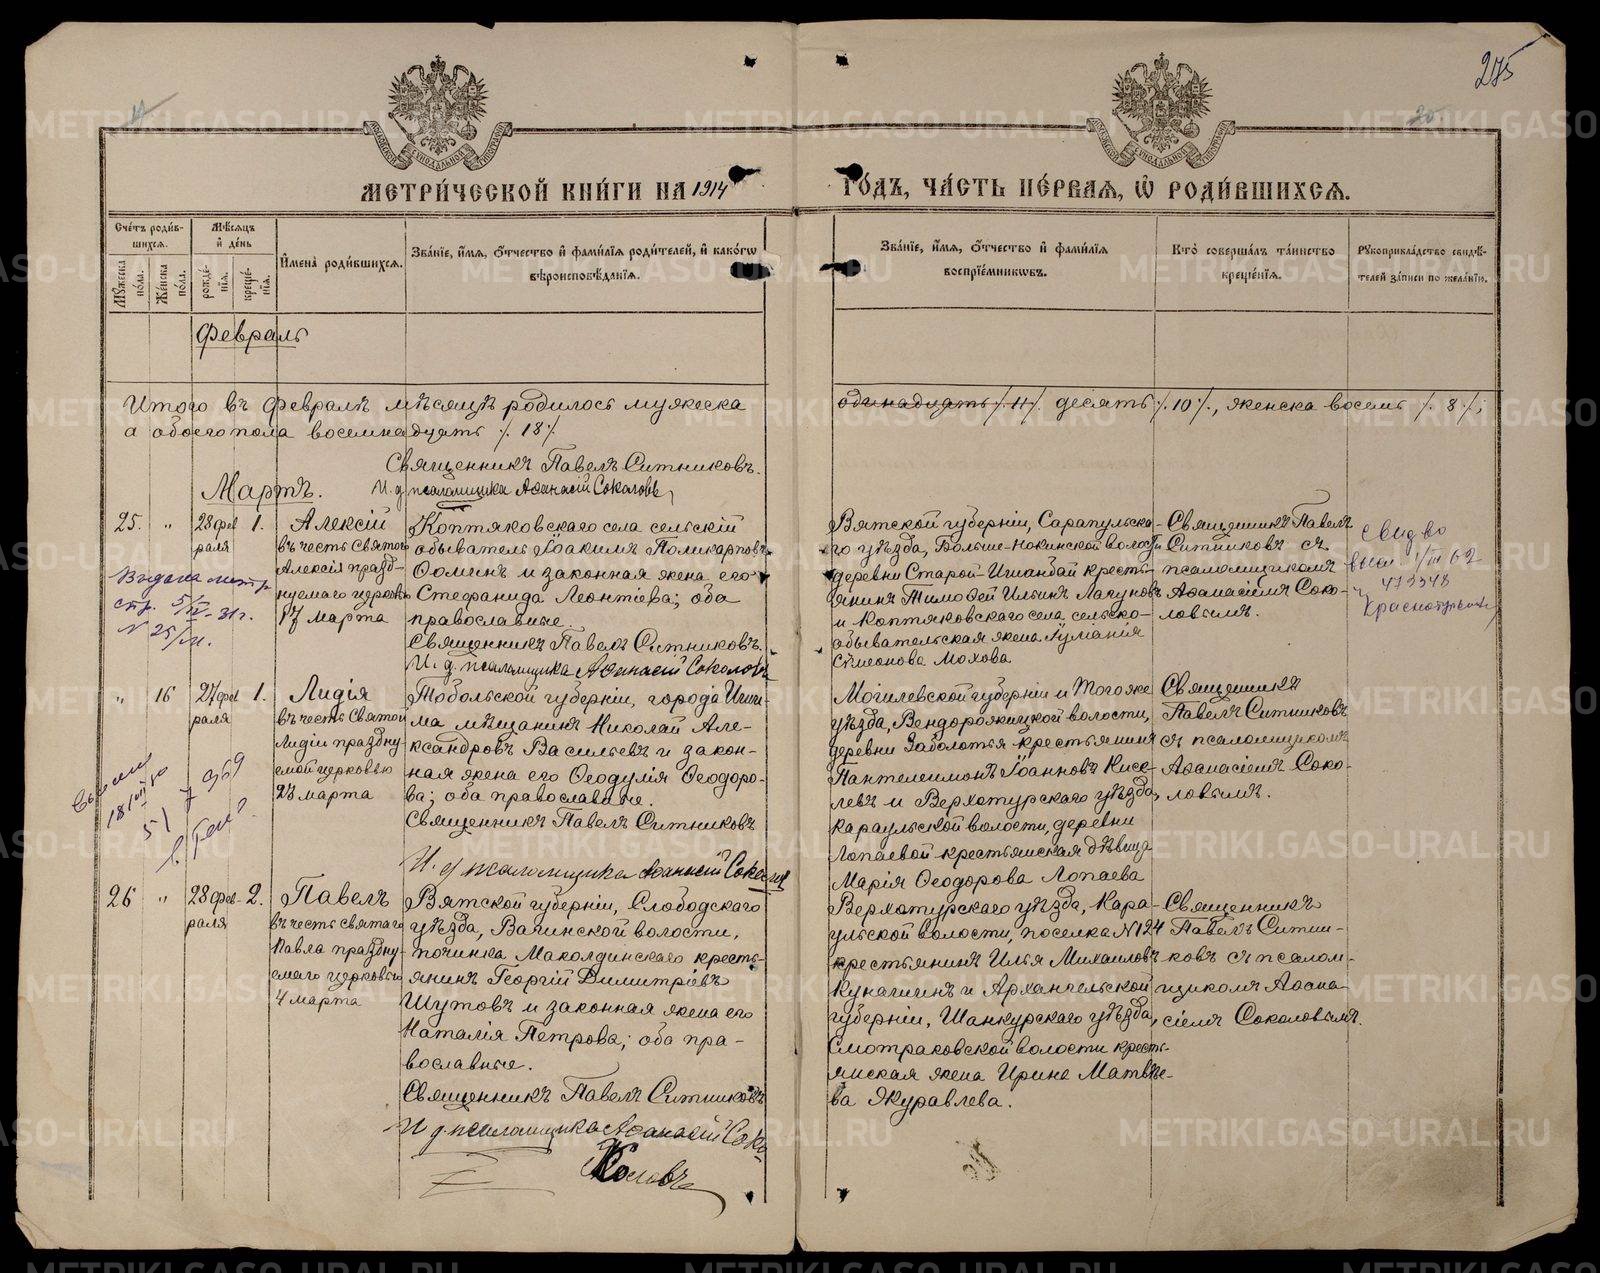 275
МЕТРИ́ЧЕСКОЙ КНИ́ГИ НА 1914
ГО́ДЪ, ЧА́СТЬ ПЕ́РВАѦ, Ѽ РОДИ́ВШИХСѦ.
Сче́тъ роди́в-
шихсѧ.
Мѣ́сѧцъ
и҆ де́нь
Мꙋ́жеска
по́ла.
Же́нска
по́ла.
рожде́-
нїѧ.
креще́-
нїѧ.
И҆мена̀ роди́вшихсѧ.
Зва́нїе, и҆́мѧ, ѻ҆́тчество и҆ фами́лїѧ роди́телей, и҆ како́гѡ
вѣроисповѣ́данїѧ.
Зва́нїе, и҆́мѧ, ѻ҆́тчество и҆ фами́лїѧ
воспрїе́мникѡвъ.
Кто̀ соверша́лъ та́инство
креще́нїѧ.
Рꙋкоприкла́дство свидѣ́-
телей за́писи по жела́нїю.
Февраль
Итого въ Февралѣ мѣсяцѣ родилось мужеска
одинадцать /.11/. десять /.10/., женска восемь /.8/.;
а обоего пола восемнадцать /.18/.
Священникъ Павелъ Ситниковъ.
И. д. псаломщика Аѳанасій Соколовъ,
Мартъ.
25. " 28 фев 1.
раля
Алексій
въ честь Святого
Алексія празд-
нуемаго церковью
17 марта
Коптяковскаго села сельскій
обыватель Іоакимъ Поликарповъ
Ѳоминъ и законная жена его
Стефанида Леонтіева; оба
православные.
Священникъ Павелъ Ситниковъ.
И. д. псаломщика Аѳанасій Соколовъ
Вятской губерніи, Сарапульска-
го уѣзда, Больше-Нокинской волости
деревни Старой-Игманбай кресть-
янинъ Тимоѳей Ильинъ Лагуновъ
и Коптяковскаго села сельско-
обывательская жена Уліанія
Симеонова Мохова
Священникъ Павелъ
Ситниковъ съ
псаломщикомъ
Аѳанасіемъ Соко-
ловымъ.
Свид во
Краснотурьинск
Выдана метр
стр. 5/IV-31г.
N 25/м.
" 16 27 фев 1.
раля
Лидія
въ честь Святой
Лидіи праздну
емой церковью
23 марта
Тобольской губерніи, города Иши-
ма мѣщанинъ Николай Але-
ксандровъ Васильевъ и закон-
ная жена его Ѳеодулія Ѳеодоро-
ва; оба православные.
Священникъ Павелъ Ситниковъ
И. д псаломщика Аѳанасій Соколовъ
Могилевской губерніи и Тогоже
уѣзда, Вендорожицкой волости,
деревни Заболотья крестьянинъ
Пантелеимонъ Іоанновъ Кисе-
левъ и Верхотурскаго уѣзда,
Караульской волости, деревни
Лопаевой крестьянская дѣвица
Марія Ѳеодорова Лопаева
Священникъ
Павелъ Ситниковъ
съ псаломщикомъ
Аѳанасіемъ Соко-
ловымъ.
26 " 28 фев- 2.
раля
Павелъ
въ честь святаго
Павла праздну-
емаго церковью
4 марта
Вятской губерніи, Слободскаго
уѣзда, Вагинской волости,
починка Маколдинскаго кресть-
янинъ Георгій Димитріевъ
Шутовъ и законная жена его
Наталія Петрова; оба пра-
вославные.
Священникъ Павелъ Ситниковъ
И д. псаломщика Аѳанасій Соко-
коловъ
Верхотурскаго уѣзда, Кара-
ульской волости, поселка N124
крестьянинъ Илья Михаиловъ
Кунагинъ и Архангельской
губерніи, Шанкурскаго уѣзда,
Смотраковской волости кресть-
янская жена Ирина Матвѣе-
ва Журавлева.
Священникъ
Павелъ Ситни-
ковъ съ псалом-
щикомъ Аѳана-
сіемъ Соколовымъ.
METRIKI.GASO-URAL.RU